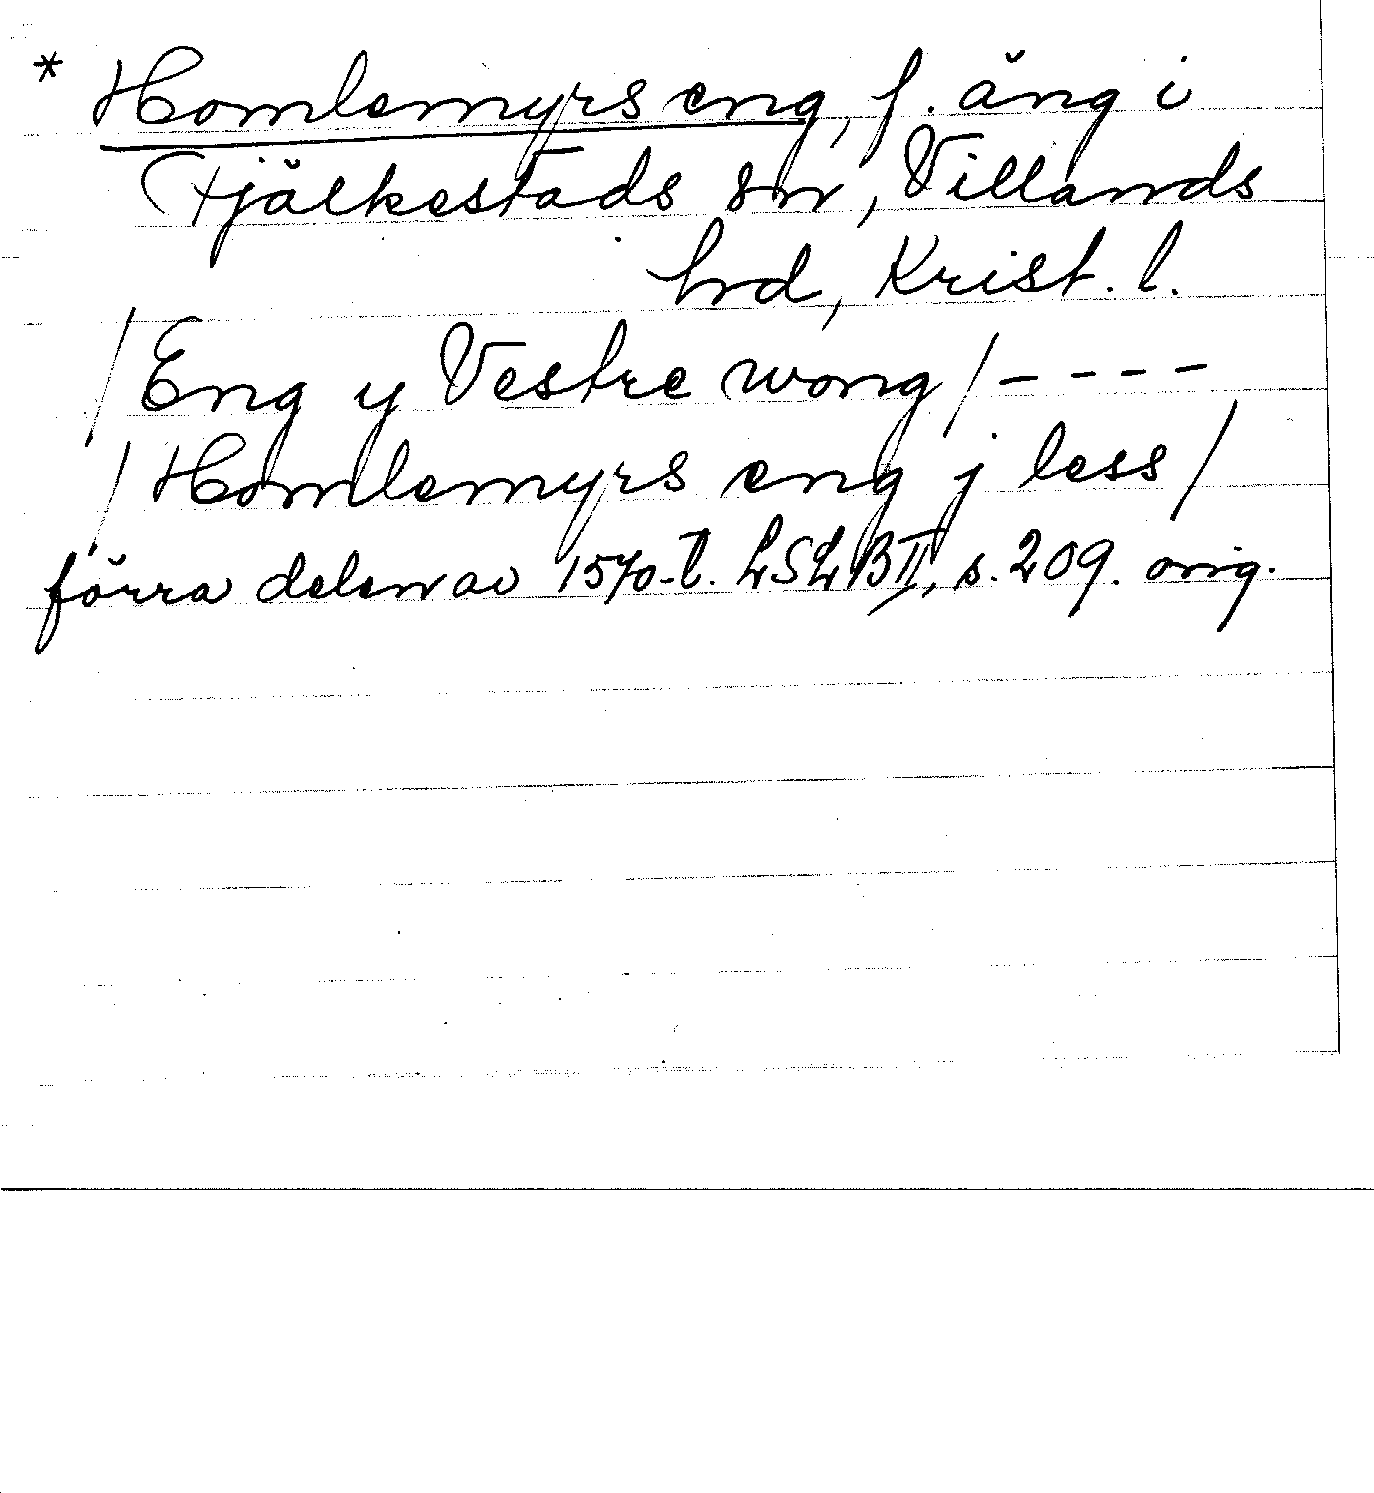 * Homlemyrs eng, f. äng i
Fjälkestads sn, Villands
hrd, Krist. l.
/ Eng y Vestre wong / - - - -
/ Homlemyrs eng j less /
förra delen av 1570-t. LSLB II, s. 209. orig.